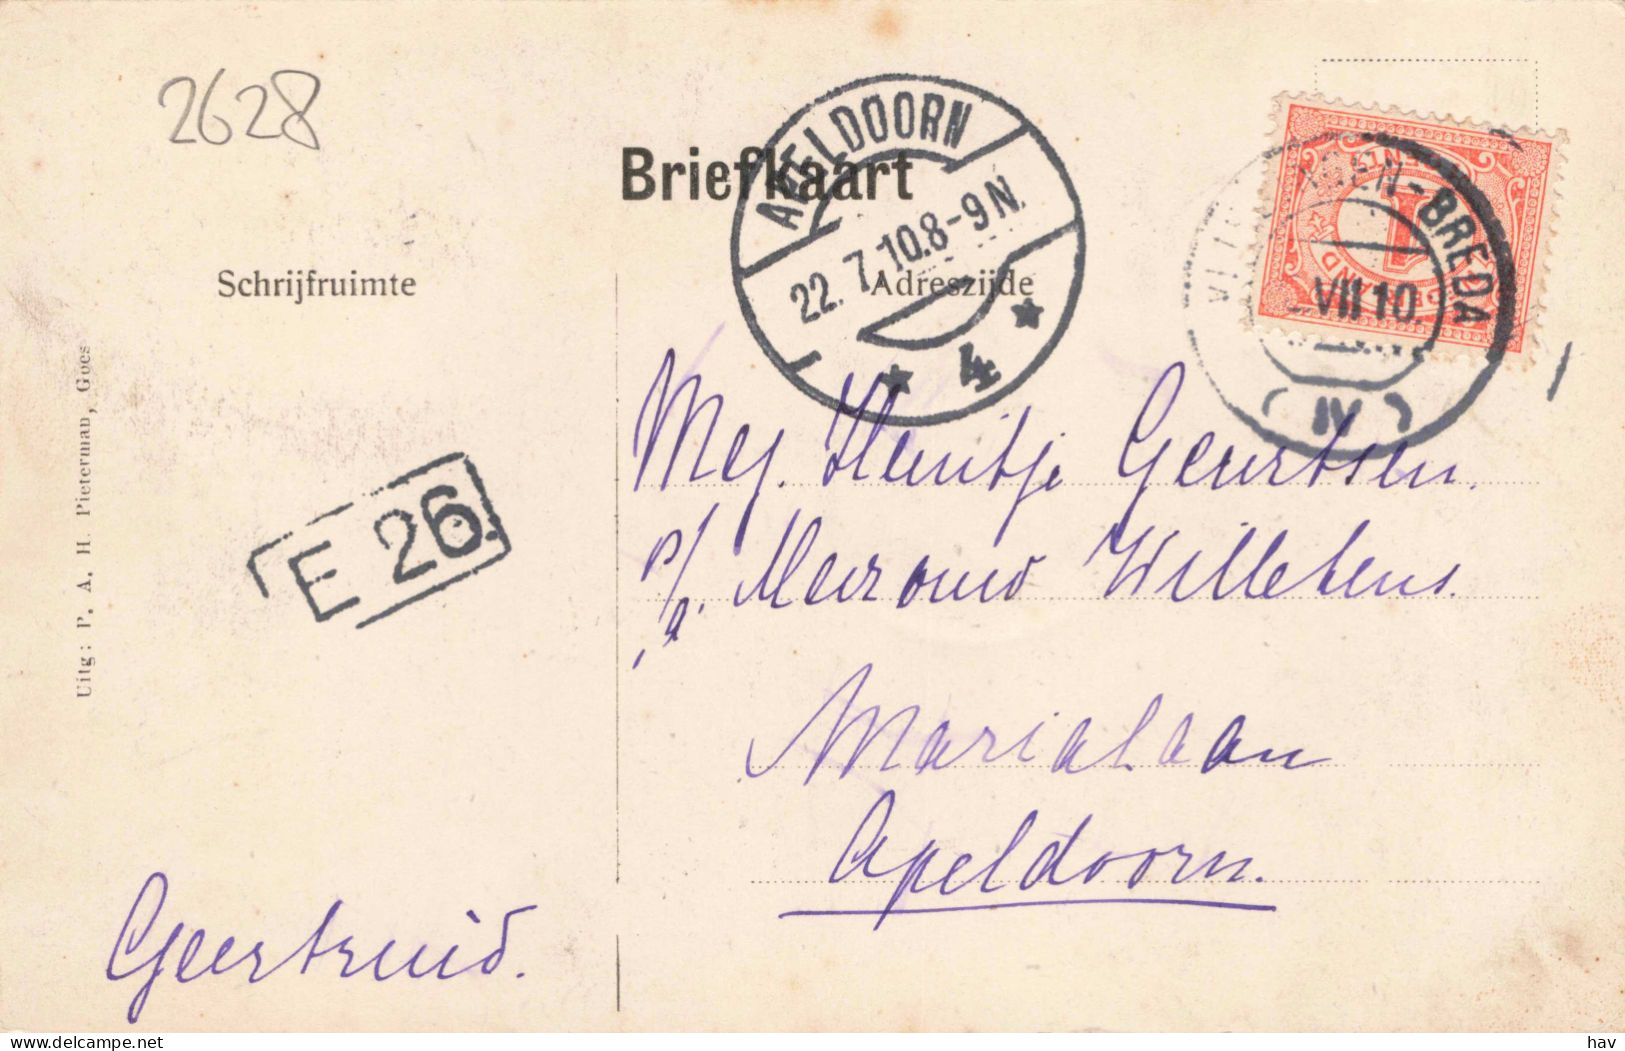 2628
Briefkaart
APELDOORN
22. 7. 10. 8-9 N.
4
Schrijfruimte
Adreszijde
BREDA
VII 10.
IV
1
Uitg: P. A. H. Pieterman, Goes
E 26.
Mej. Henritje Geurtsen.
p/a. Mevrouw Willekens.
Marialaan
Apeldoorn.
Geertruid.
Delcampe.net
hav